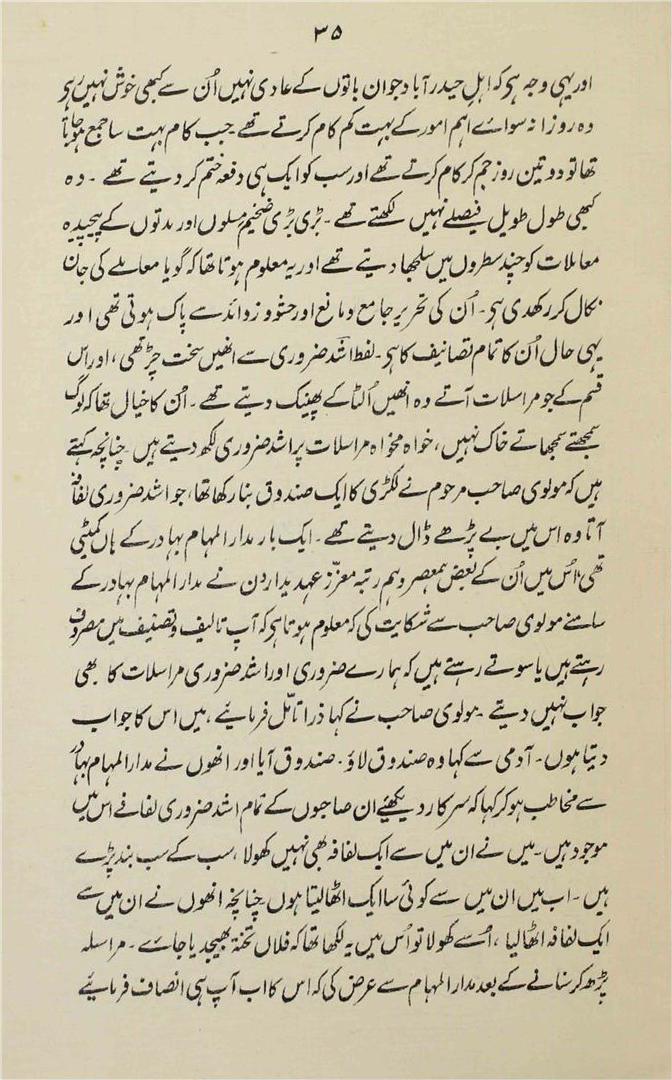 ۳۵
اور یہی وجہ ہی کہ اہلِ حیدرآباد جو ان باتوں کے عادی نہیں اُن سے کبھی خوش نہیں رہی
وہ روزانہ سواے اہم امور کے بہت کم کام کرتے تھے جب کام بہت سا جمع ہوجاتا
تھا تو دو تین روز جم کر کام کرتے تھے اور سب کو ایک ہی دفعہ ختم کر دیتے تھے ۔ وہ
کبھی طول طویل فیصلے نہیں لکھتے تھے ۔ بڑی بڑی ضخیم مسلوں اور مدتوں کے پیچیدہ
معاملات کو چند سطروں میں سلجھا دیتے تھے اور یہ معلوم ہوتا تھا کہ گویا معاملے کی جان
نکال کر رکھدی ہی ۔ اُن کی تحریر جامع و مانع اور حشو و زوائد سے پاک ہوتی تھی اور
یہی حال اُن کا تمام تصانیف کا ہو ۔ لفظ اشد ضروری سے انھیں سخت چڑ تھی ، اور اس
قسم کے جو مراسلات آتے وہ انھیں اُلٹا کے پھینک دیتے تھے ۔ اُن کا خیال تھا کہ لوگ
سمجھتے سمجھاتے خاک نہیں ، خواہ مخواہ مراسلات پر اشد ضروری لکھ دیتے ہیں چنانچہ کہتے
ہیں کہ مولوی صاحب مرحوم نے لکڑی کا ایک صندوق بنا رکھا تھا ، جو اشد ضروری لفافہ
آتا وہ اس میں بے پڑھے ڈال دیتے تھے ۔ ایک بار مدار المہام بہادر کے ہاں کمیٹی
تھی اُس میں اُن کے بعض ہمعصر و ہم رتبہ معزّز عہدیداروں نے مدار المہام بہادر کے
سامنے مولوی صاحب سے شکایت کی کہ معلوم ہوتا ہی کہ آپ تالیف و تصنیف میں مصروف
رہتے ہیں یا سوتے رہتے ہیں کہ ہمارے ضروری اور اشد ضروری مراسلات کا بھی
جواب نہیں دیتے ۔ مولوی صاحب نے کہا ذرا تامّل فرمایئے ، میں اس کا جواب
دیتا ہوں ۔ آدمی سے کہا وہ صندوق لاؤ ۔ صندوق آیا اور انھوں نے مدار المہام بہادر
سے مخاطب ہو کر کہا کہ سرکار دیکھیئے ان صاحبوں کے تمام اشد ضروری لفافے اس میں
موجود ہیں ۔ میں نے ان میں سے ایک لفافہ بھی نہیں کھولا ، سب کے سب بند پڑے
ہیں ۔ اب میں ان میں سے کوئی سا ایک اٹھا لیتا ہوں چنانچہ انھوں نے ان میں سے
ایک لفافہ اٹھا لیا ، اُسے کھولا تو اُس میں یہ لکھا تھا کہ فلاں تختہ بھیجدیا جاے ۔ مراسلہ
پڑھ کر سنانے کے بعد مدار المہام سے عرض کی کہ اس کا اب آپ ہی انصاف فرمایئے